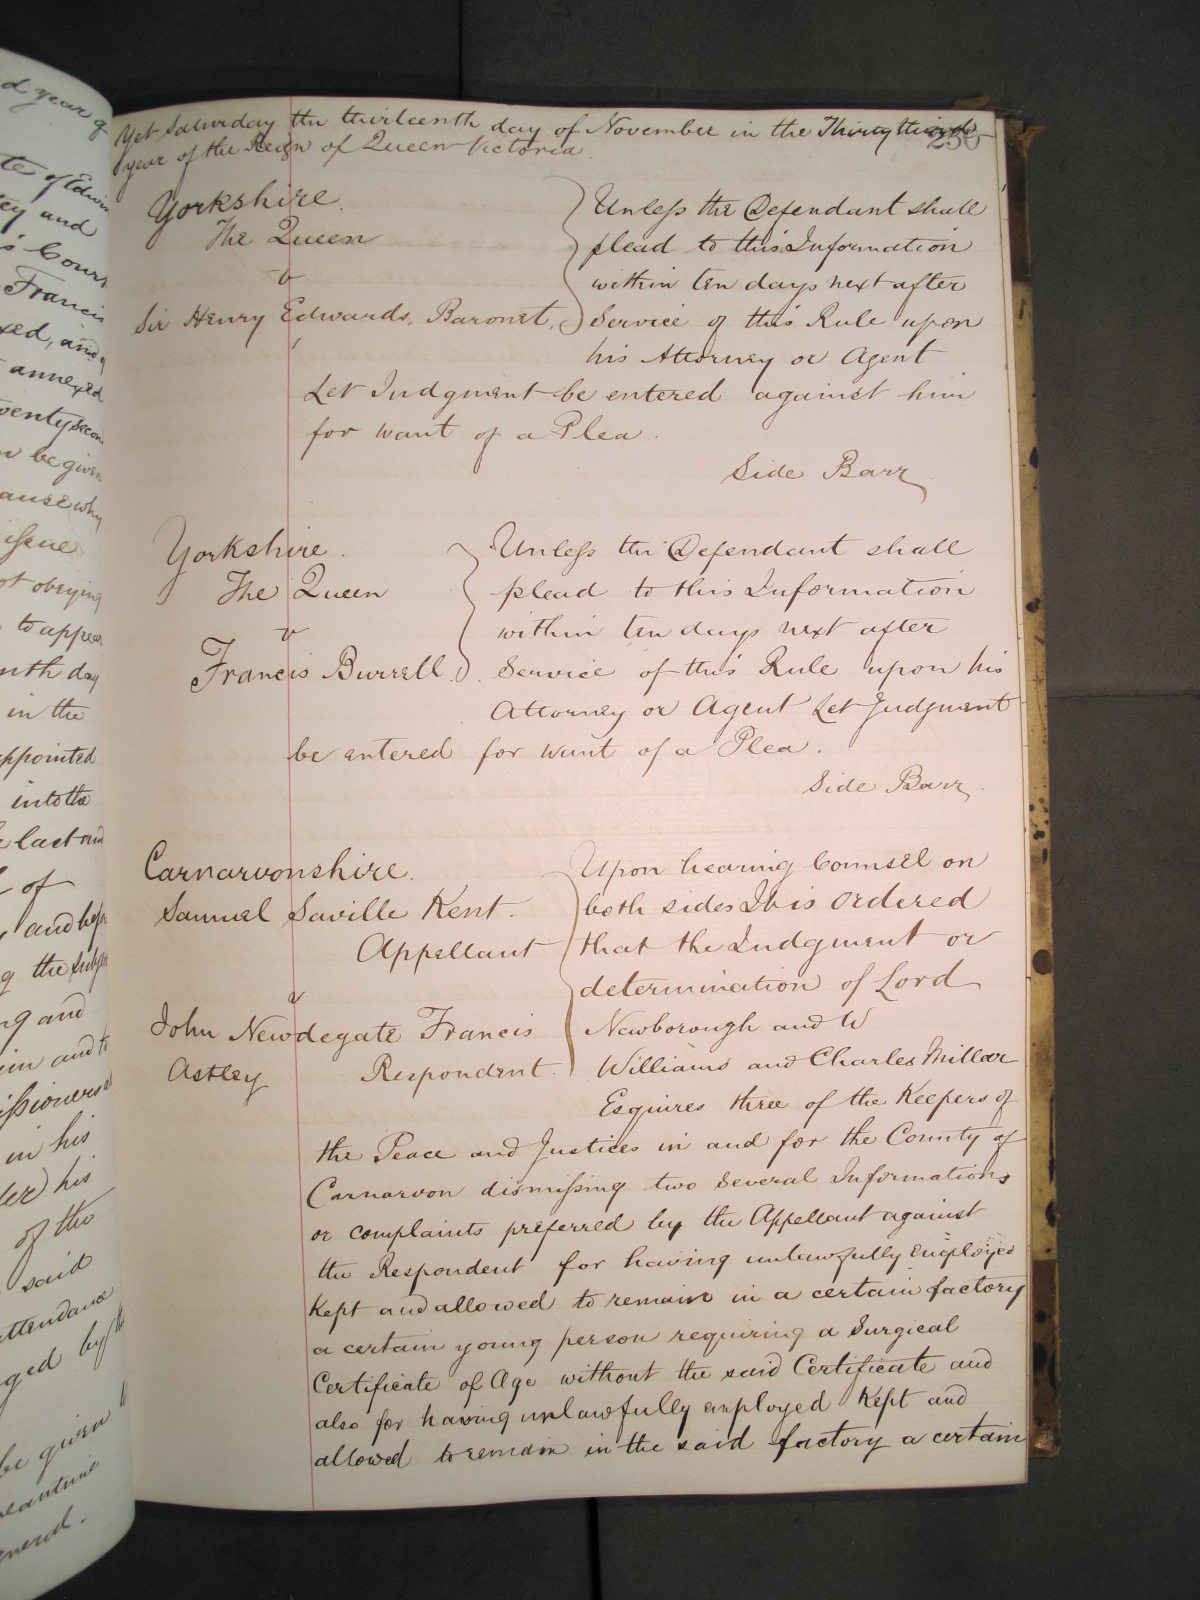 d year of
te of Edwin
ey and
's Court
Francis
xed, and
annexed
wenty Secon
n be given
ause why
issue
ot obeying
to appear
nth day
in the
appointed
into the
e last and
of
and befo
g the
ng and
im and to
issioners
in his
der his
of the
said
attendance
ged by
be given
meantime
neral.
Yet Saturday the thirteenth day of November in the Thirty third
year of the Reign of Queen Victoria.
236
Yorkshire.
The Queen
v
Sir Henry Edwards, Baronet.
Unless the Defendant shall
plead to this Information
within ten days next after
Service of this Rule upon
his Attorney or Agent
Let Judgment be entered against him
for want of a Plea.
Side Barr
Yorkshire.
The Queen
v
Francis Burrell.
Unless the Defendant shall
plead to this Information
within ten days next after
Service of this Rule upon his
Attorney or Agent Let Judgment
be entered for want of a Plea.
Side Barr.
Carnarvonshire.
Samuel Saville Kent.
Appellant
v
John Newdegate Francis
Astley Respondent.
Upon hearing Counsel on
both sides It is Ordered
that the Judgment or
determination of Lord
Newborough and W
Williams and Charles Millar
Esquires three of the Keepers of
the Peace and Justices in and for the County of
Carnarvon dismissing two Several Informations
or complaints preferred by the Appellant against
the Respondent for having unlawfully employed
Kept and allowed to remain in a certain factory
a certain young person requiring a Surgical
Certificate of Age without the said Certificate and
also for having unlawfully employed Kept and
allowed to remain in the said factory a certain